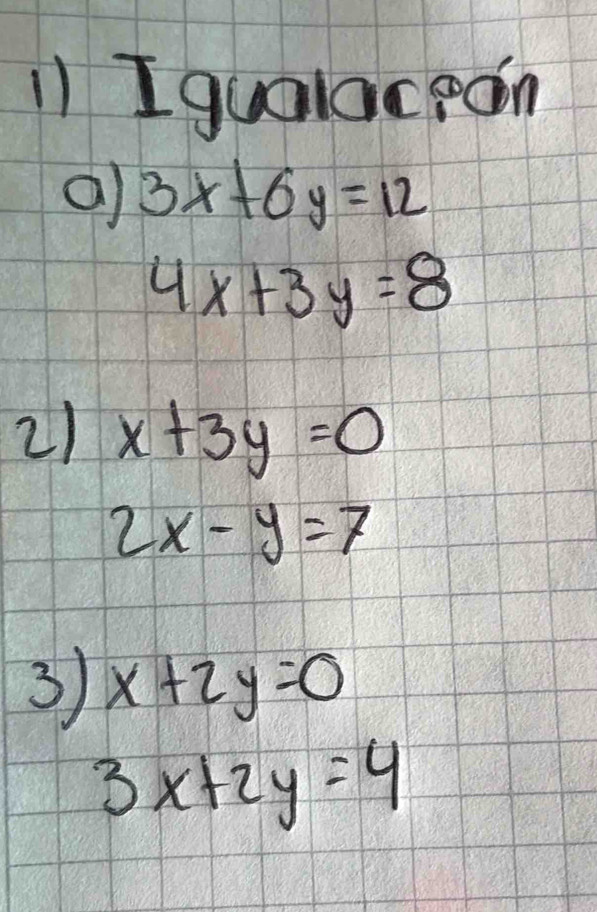 1) Igualación
a) 3x+6y=12
4x+3y=8
2) x+3y=0
2x-y=7
3) x+2y=0
3x+2y=4